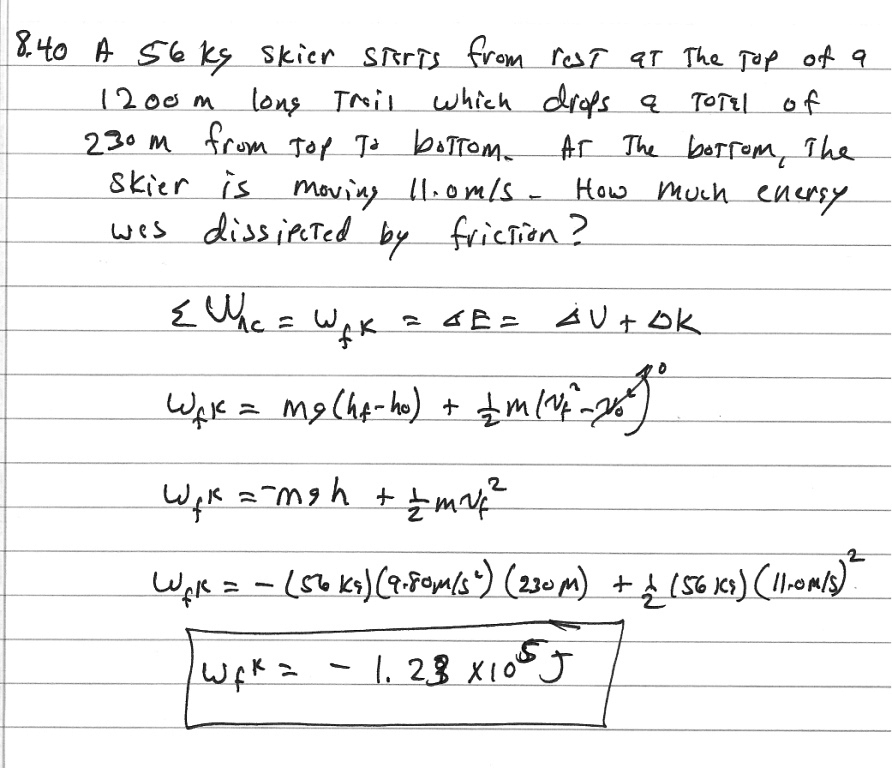 8.40 A 56 kg skier starts from rest at the top of a
1200 m long trail which drops a total of
230 m from top to bottom. At the bottom, the
skier is moving 11.0 m/s. How much energy
was dissipated by friction?
Σ W_nc = W_fk = ΔE = ΔU + ΔK
W_fk = mg(h_f - h_0) + 1/2 m(v_f² - v_0²) 0
W_fk = -mgh + 1/2 m v_f²
W_fk = - (56 kg)(9.80 m/s²)(230 m) + 1/2 (56 kg)(11.0 m/s)²
W_fk = - 1.23 × 10⁵ J